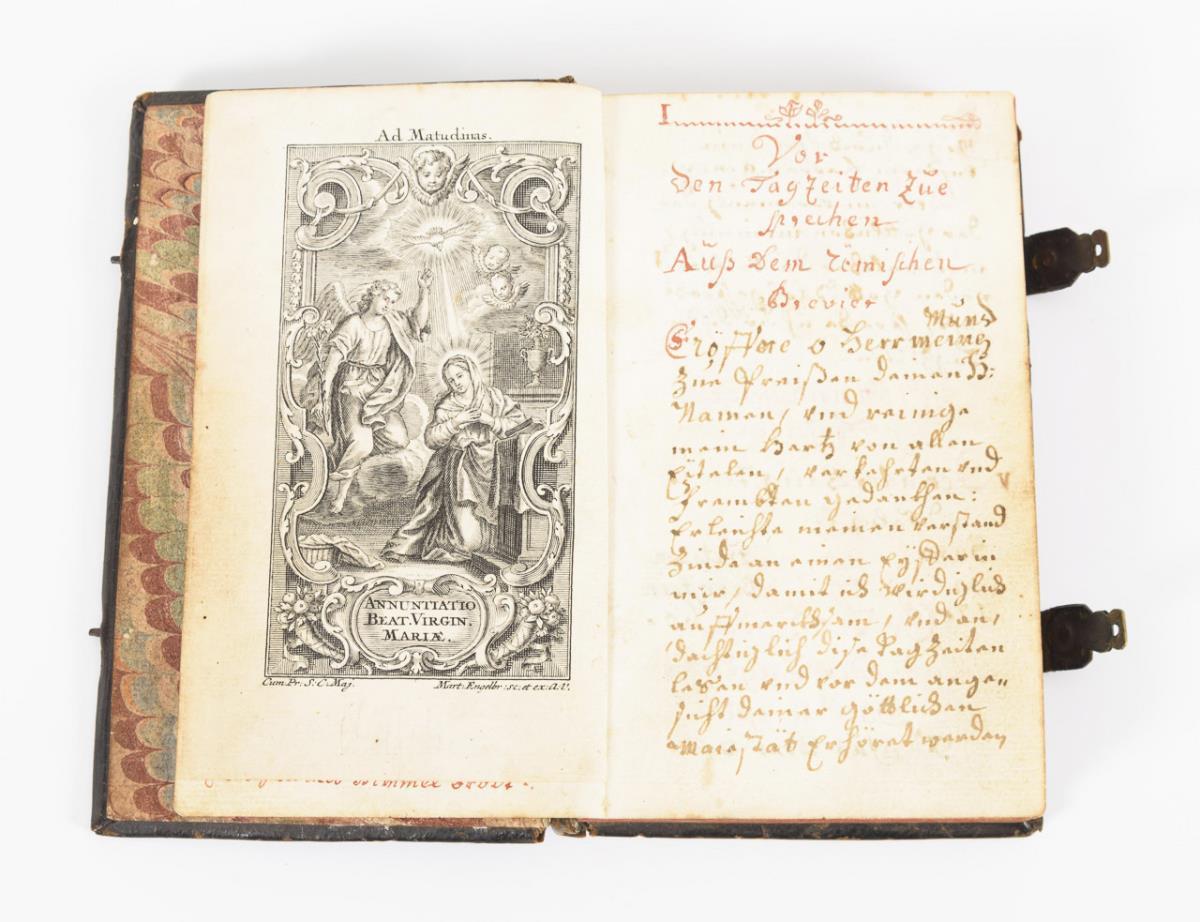 Ad Matudinas.
ANNUNTIATIO
BEAT. VIRGIN.
MARIÆ.
Cum Pr: S: C: Maj.
Mart: Engelbr: sc: et ex: A.V.
Himmel
I
Vor
den Tagzeiten zue
sprechen
Auß dem römischen
Brevier
Eröffne o Herr meinen
Mund
zue Preißen deinen H:
Namen, vnd reinige
mein Hertz von allen
Eitelen, verkehrten vnd
frembten gedankhen:
Erleichte meinen verstand
Zinde an einen Eyffer in
mir, damit ich Wirdiglich
auffmerkhsam, vnd an,
dächtiglich dise tagzeiten
lesen vnd vor dem ange-
sicht deiner göttlichen
Maiestät Erhöret werden